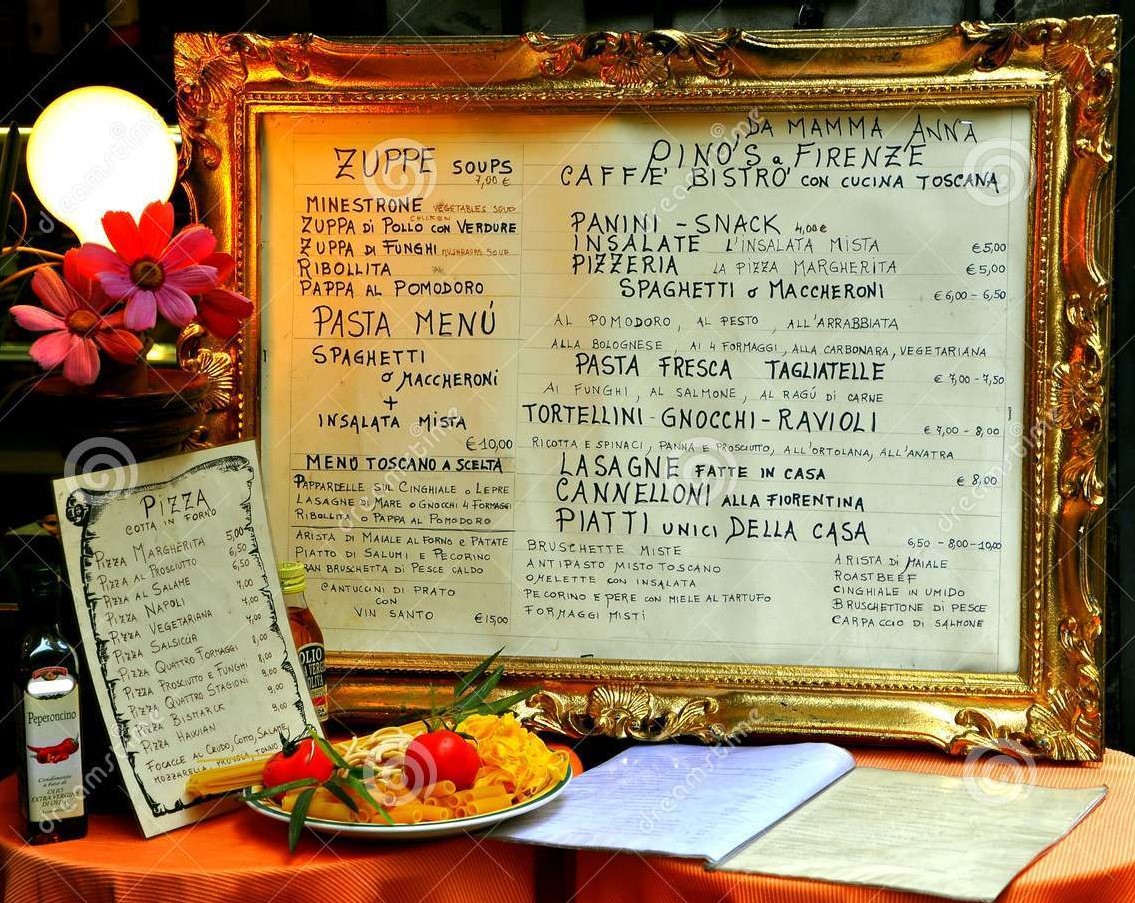 ZUPPE SOUPS
7,00 €
MINESTRONE VEGETABLES SOUP
CHICKEN
ZUPPA DI POLLO CON VERDURE
ZUPPA DI FUNGHI MUSHROOMS SOUP
RIBOLLITA
PAPPA AL POMODORO
PASTA MENÚ
SPAGHETTI
o MACCHERONI
+
INSALATA MISTA
€ 10,00
MENÚ TOSCANO A SCELTA
PAPPARDELLE SUL CINGHIALE o LEPRE
LASAGNE DI MARE o GNOCCHI 4 FORMAGGI
RIBOLLITA o PAPPA AL POMODORO
ARISTA DI MAIALE AL FORNO e PATATE
PIATTO DI SALUMI E PECORINO
GRAN BRUSCHETTA DI PESCE CALDO
CANTUCCINI DI PRATO
CON
VIN SANTO € 15,00
DA MAMMA ANNA
PINO'S a FIRENZE
CAFFE' BISTRO' CON CUCINA TOSCANA
PANINI - SNACK 4,00 €
INSALATE L'INSALATA MISTA € 5,00
PIZZERIA LA PIZZA MARGHERITA € 5,00
SPAGHETTI o MACCHERONI € 6,00 - 6,50
AL POMODORO, AL PESTO, ALL'ARRABBIATA
ALLA BOLOGNESE, AI 4 FORMAGGI, ALLA CARBONARA, VEGETARIANA
PASTA FRESCA TAGLIATELLE € 7,00 - 7,50
AI FUNGHI, AL SALMONE, AL RAGÚ DI CARNE
TORTELLINI - GNOCCHI - RAVIOLI € 7,00 - 8,00
RICOTTA E SPINACI, PANNA E PROSCIUTTO, ALL'ORTOLANA, ALL'ANATRA
LASAGNE FATTE IN CASA € 8,00
CANNELLONI ALLA FIORENTINA
PIATTI UNICI DELLA CASA 6,50 - 8,00 - 10,00
BRUSCHETTE MISTE
ANTIPASTO MISTO TOSCANO
OMELETTE CON INSALATA
PECORINO E PERE CON MIELE AL TARTUFO
FORMAGGI MISTI
ARISTA DI MAIALE
ROASTBEEF
CINGHIALE IN UMIDO
BRUSCHETTONE DI PESCE
CARPACCIO DI SALMONE
PIZZA
COTTA IN FORNO
PIZZA MARGHERITA 5,00
PIZZA AL PROSCIUTTO 6,50
PIZZA AL SALAME 6,50
PIZZA NAPOLI 7,00
PIZZA VEGETARIANA 7,00
PIZZA SALSICCIA 7,00
PIZZA QUATTRO FORMAGGI 8,00
PIZZA PROSCIUTTO E FUNGHI 8,00
PIZZA QUATTRO STAGIONI 9,00
PIZZA BISMARCK 9,00
PIZZA HAWAIAN 9,00
FOCACCE AL CRUDO, COTTO, SALAME
MOZZARELLA, PROVOLA, TONNO
OLIO
Peperoncino
Condimento
OLIO
EXTRA VERGINE
DI OLIVA
dreamstime